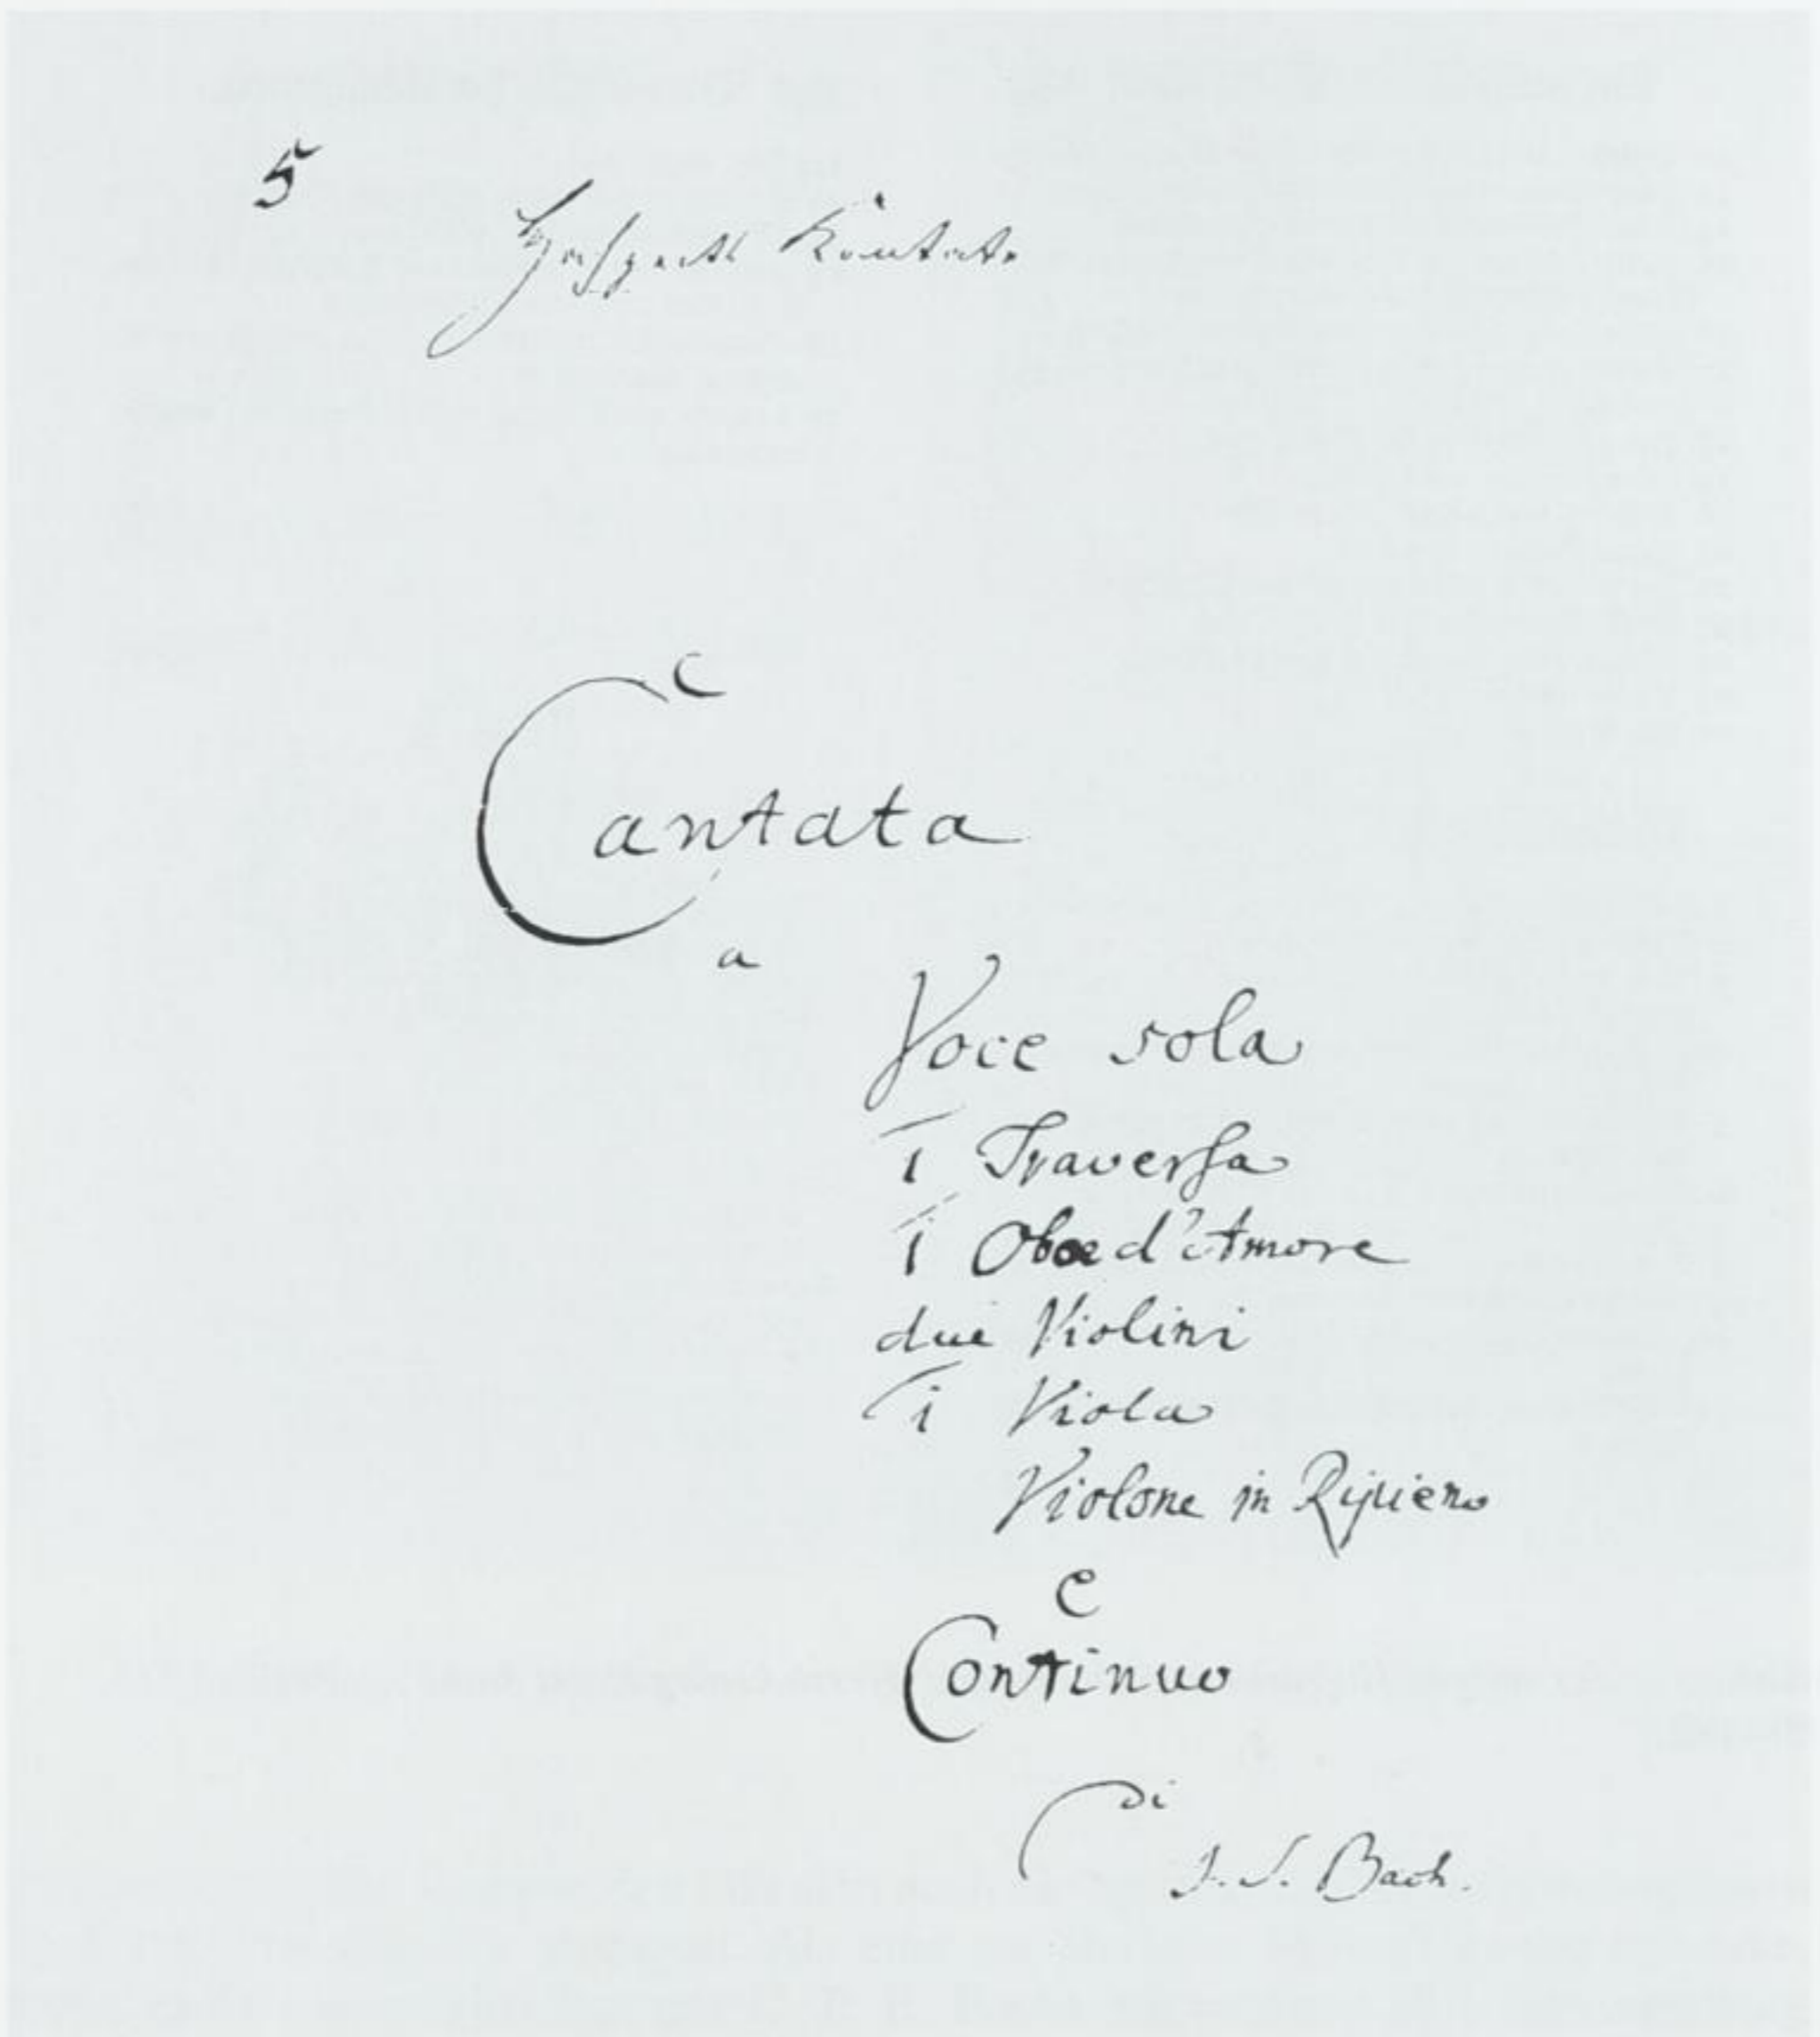 5
Kantate
Cantata
a
Voce sola
1 Traversa
1 Oboe d'Amore
due Violini
1 Viola
Violone in Ripieno
e
Continuo
di
J. S. Bach.